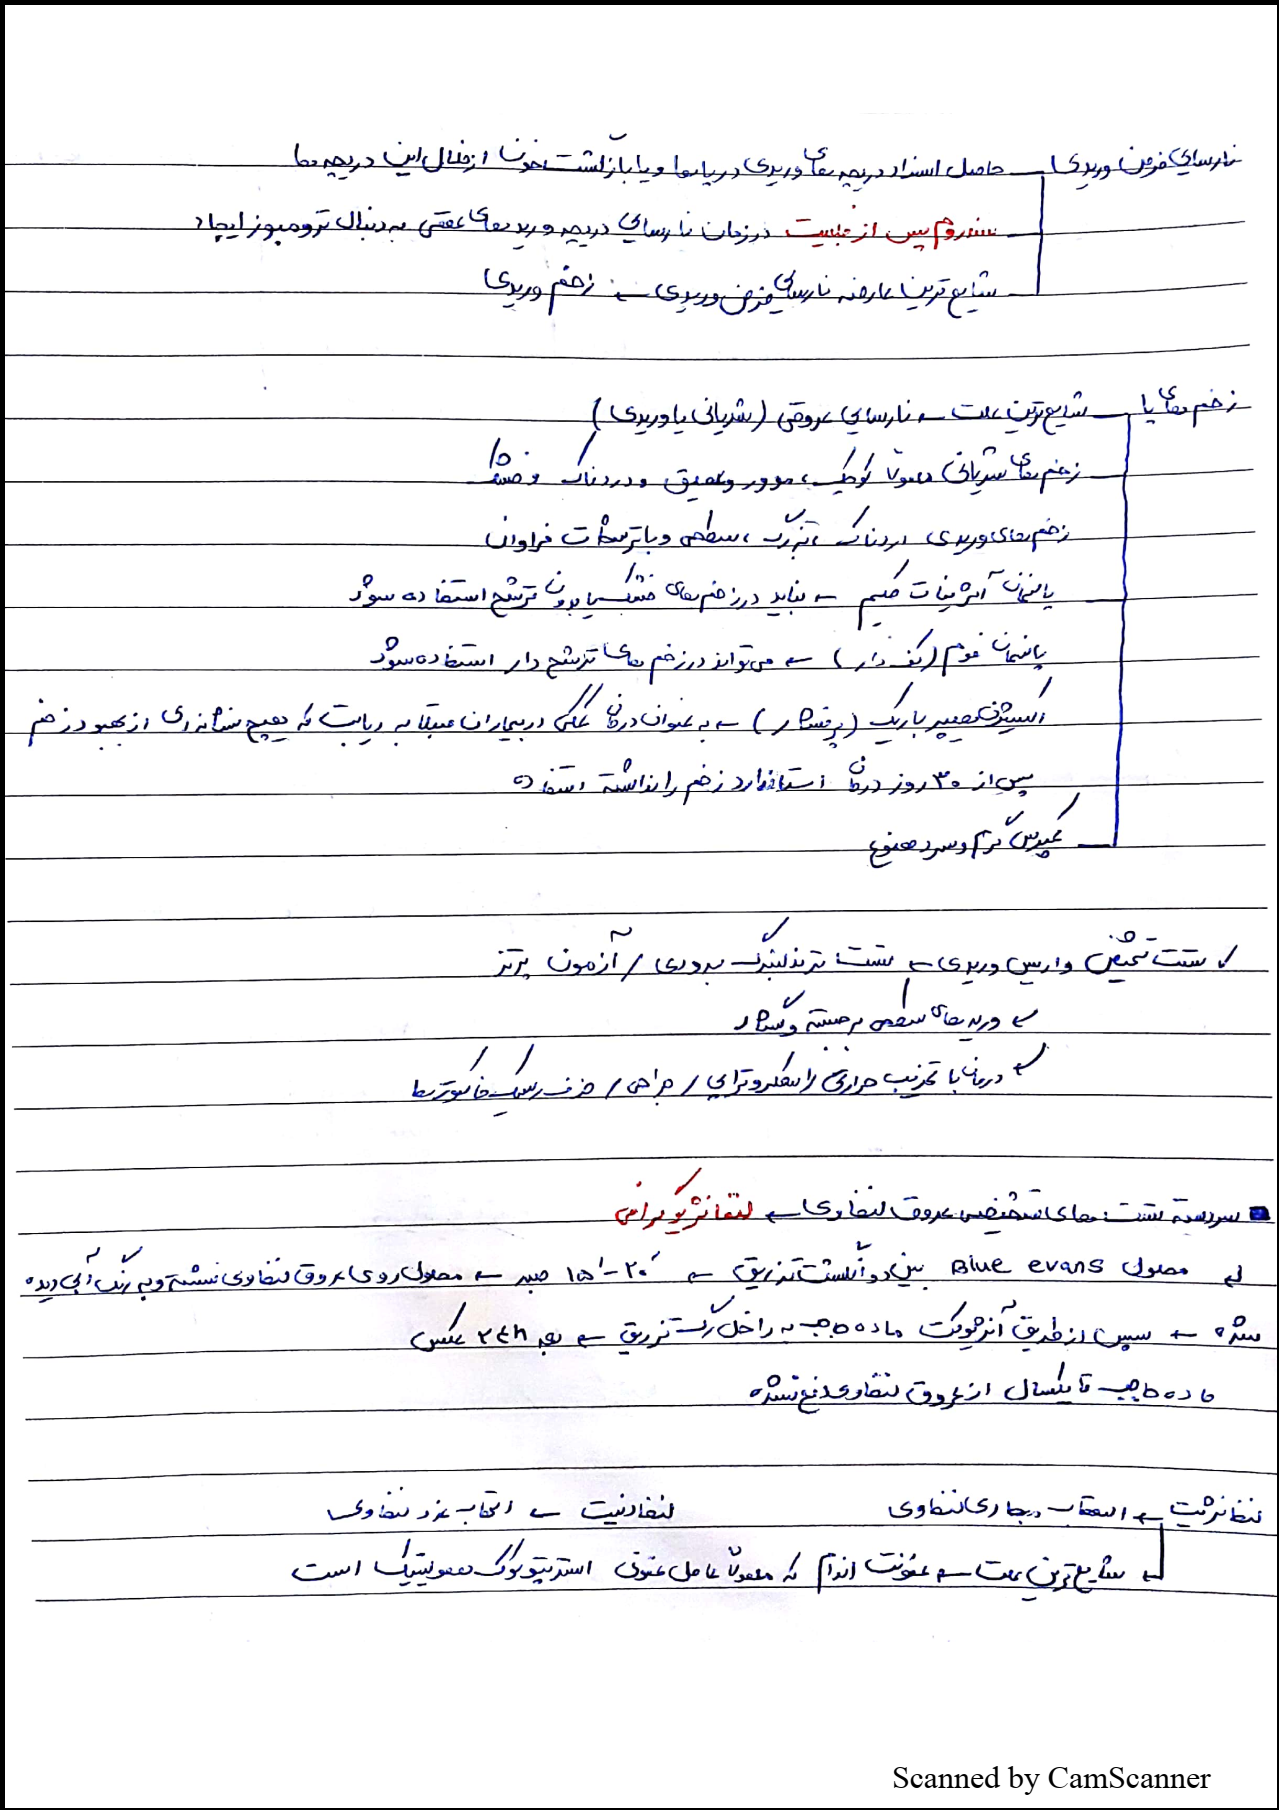 نارسایی مزمن وریدی حاصل انسداد دریچه های وریدی در پاها و یا بازگشت خون از خلال این دریچه ها
سندروم پس از فلبیت در زمان نارسایی دریچه ورید های عمقی به دنبال ترومبوز ایجاد
شایع ترین عارضه نارسایی مزمن وریدی ← زخم وریدی
زخم های پا شایع ترین علت ← نارسایی عروقی (شریانی یا وریدی)
زخم های شریانی معمولاً کوچک، مدور و عمیق و دردناک و خشک
زخم های وریدی دردناک، بزرگ، سطحی و با ترشحات فراوان
پانسمان آلژینات کلسیم ← نباید در زخم های خشک یا بدون ترشح استفاده شود
پانسمان فوم (کف دار) ← می تواند در زخم های ترشح دار استفاده شود
اکسیژن هیپرباریک (پرفشار) ← به عنوان درمان کمکی در بیماران مبتلا به دیابت که هیچ نشانه ای از بهبود زخم
پس از ۳۰ روز درمان استاندارد زخم را نداشته استفاده
کمپرس گرم و سرد ممنوع
✓ تست تشخیص واریس وریدی ← تست ترندلنبرگ برودی / آزمون پرتز
← ورید های سطحی برجسته و گشاد
← درمان با تخریب حرارتی / اسکلروتراپی / جراحی / حذف ریسک فاکتورها
سردسته تست های تشخیصی عروق لنفاوی ← لنفانژیوگرافی
محلول Blue evans بین دو انگشت تزریق ← ۱۵′-۲۰′ صبر ← محلول روی عروق لنفاوی نشسته و به رنگ آبی دیده
شده ← سپس از طریق آنژیوکت ماده حاجب به داخل رگ تزریق ← بعد ۲۴h عکس
ماده حاجب تا یکسال از عروق لنفاوی دفع نشده
لنفانژیت ← التهاب مجاری لنفاوی لنفادنیت ← التهاب غدد لنفاوی
شایع ترین علت ← عفونت اندام که معمولاً عامل عفونی استرپتوکوک همولیتیک است
Scanned by CamScanner